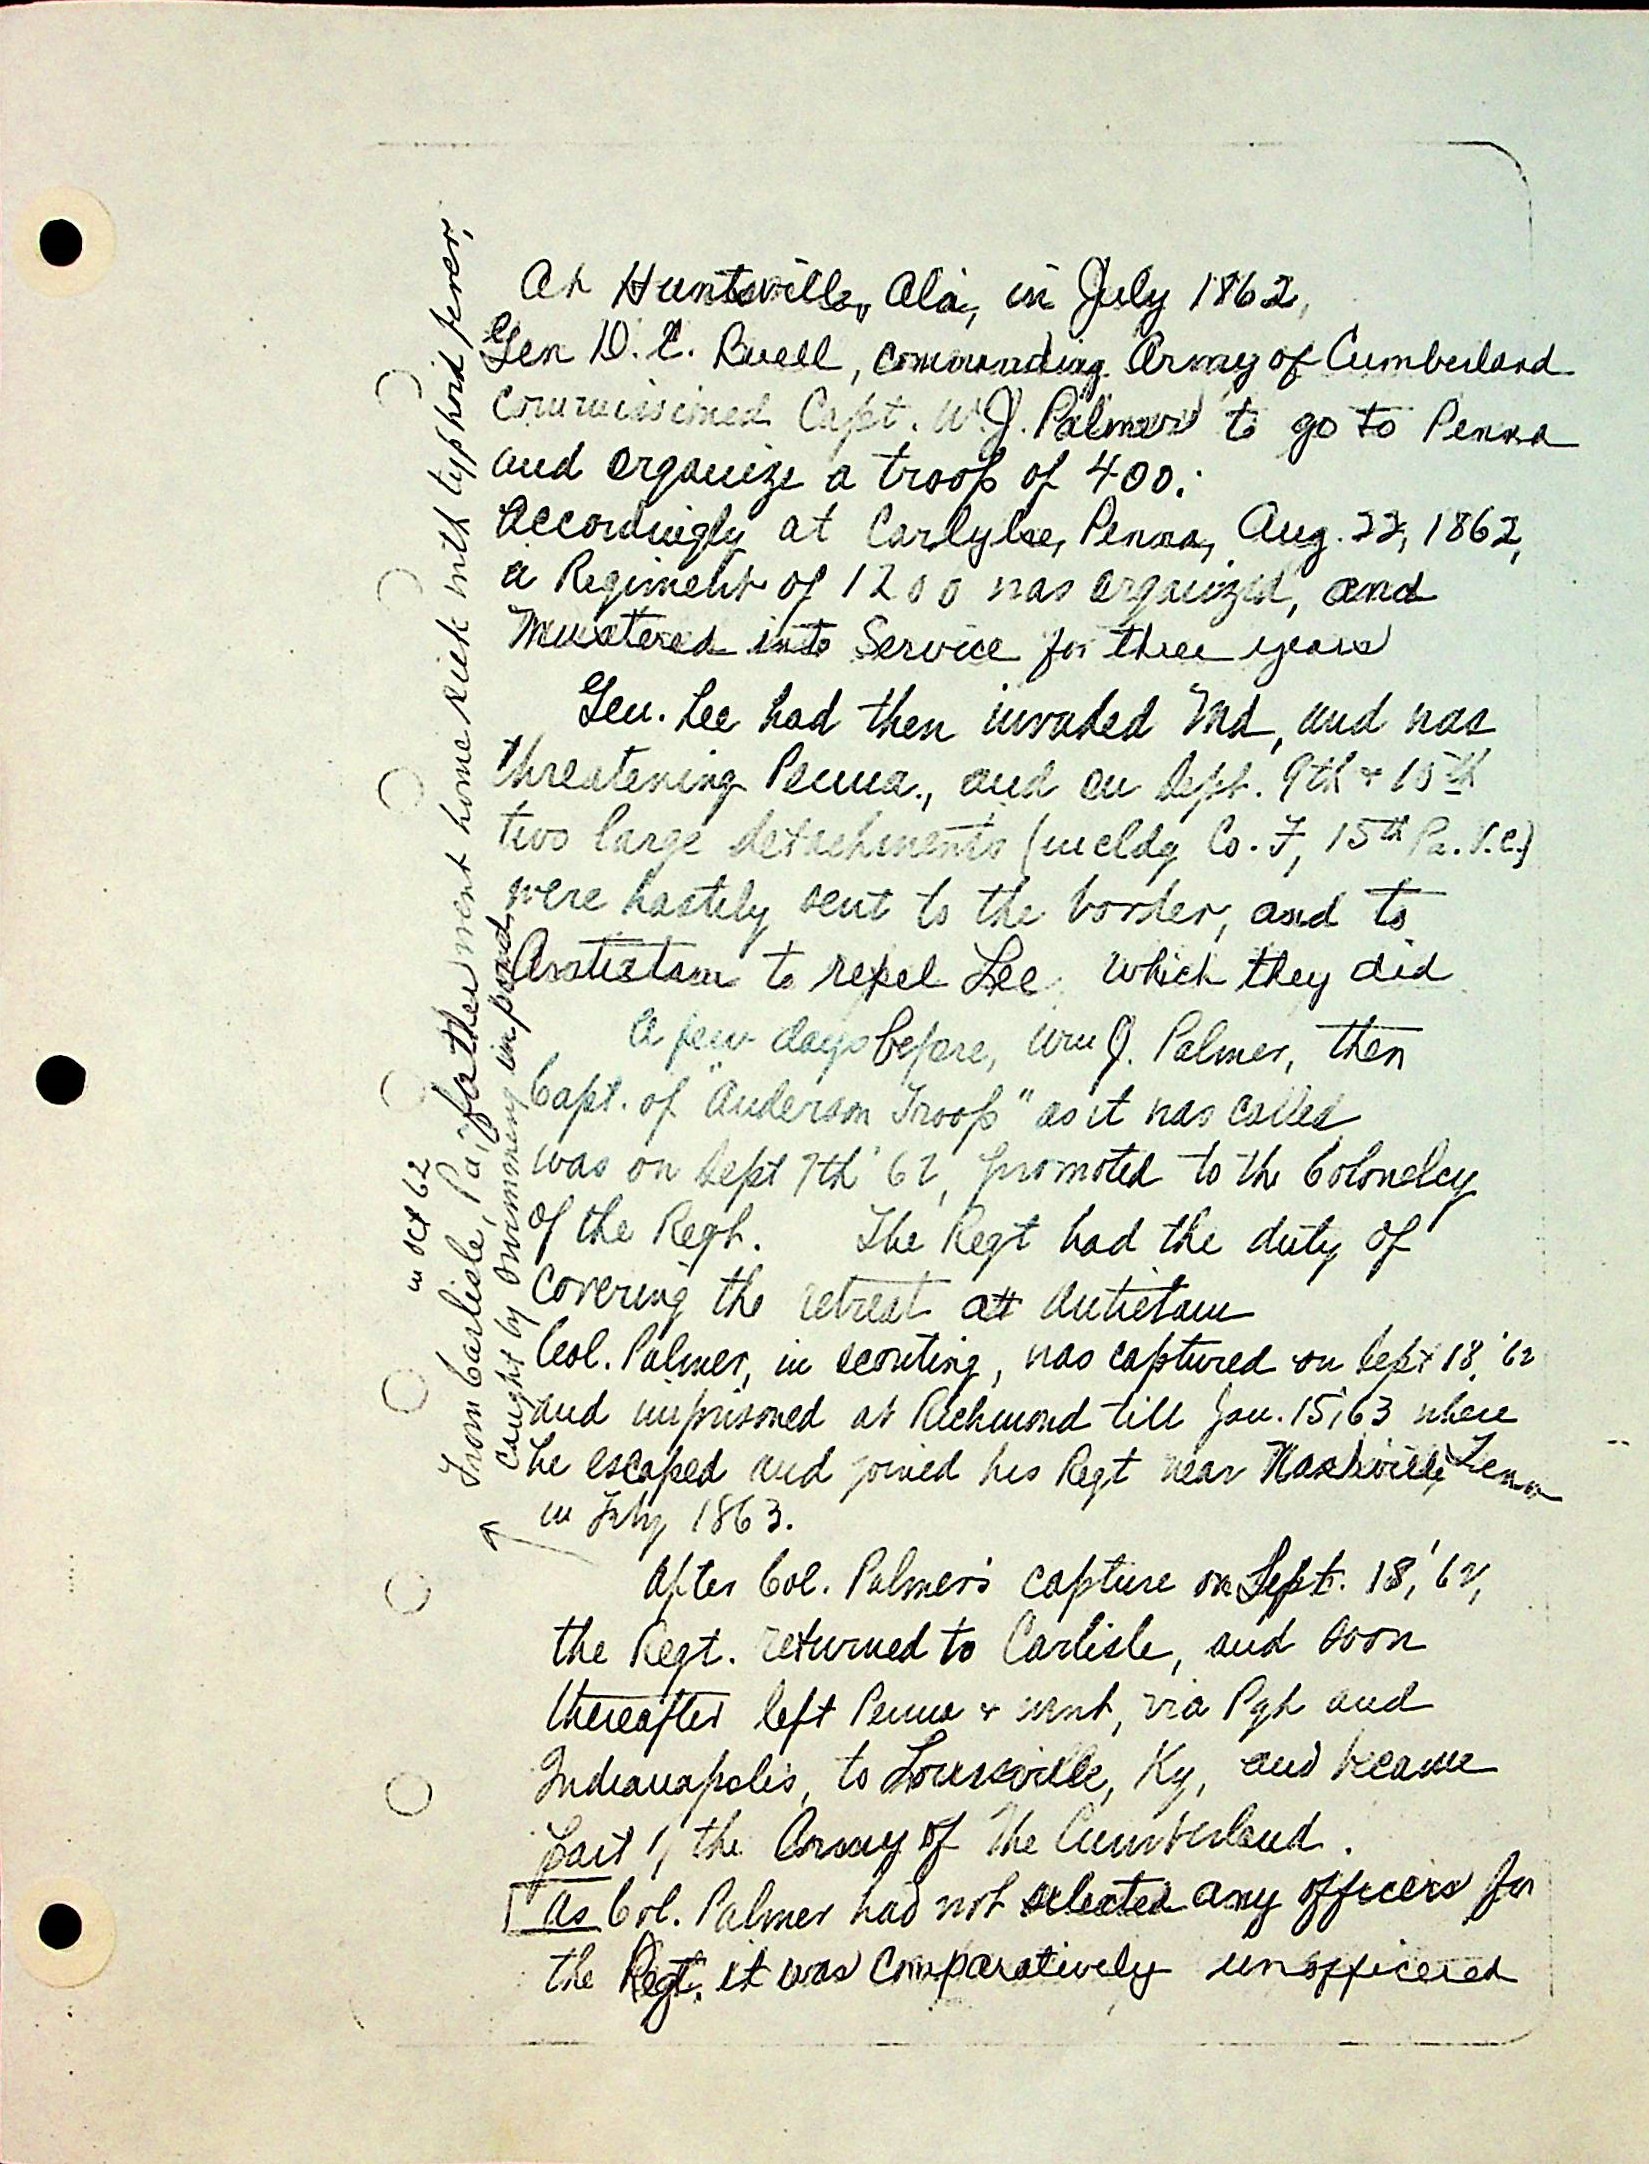 At Huntsville, Ala, in July 1862,
Gen D. C. Buell, commanding Army of Cumberland
Commissioned Capt. W. J. Palmer to go to Penna
and organize a troop of 400.
Accordingly at Carlylse, Penna, Aug. 22, 1862,
a Regiment of 1200 was organized, and
Mustered into Service for three years
Gen. Lee had then invaded Md, and was
threatening Penna., and on Sept. 9th & 10th
two large detachments (incldg Co. F, 15th Pa. V.C.)
were hastily sent to the border, and to
Antietam to repel Lee which they did
A few days before, Wm J. Palmer, then
Capt. of "Anderson Troop" as it was called
was on Sept 7th '62, promoted to the Colonelcy
of the Regt. The Regt had the duty of
covering the retreat at Antietam
Col. Palmer, in scouting, was captured on Sept 18, '62
and imprisoned at Richmond till Jan. 15, 63 where
he escaped and joined his Regt near Nashville, Tenn
in Feby 1863.
After Col. Palmer's capture on Sept. 18, '62,
the Regt. returned to Carlisle, and soon
thereafter left Penna & went, via Pgh and
Indianapolis, to Louisville, Ky, and became
part of the Army of the Cumberland.
As Col. Palmer had not selected any officers for
the Regt. it was comparatively unofficered
in Oct 62
From Carlisle, Pa, father went home sick with typhoid fever,
caught by swimming in pond